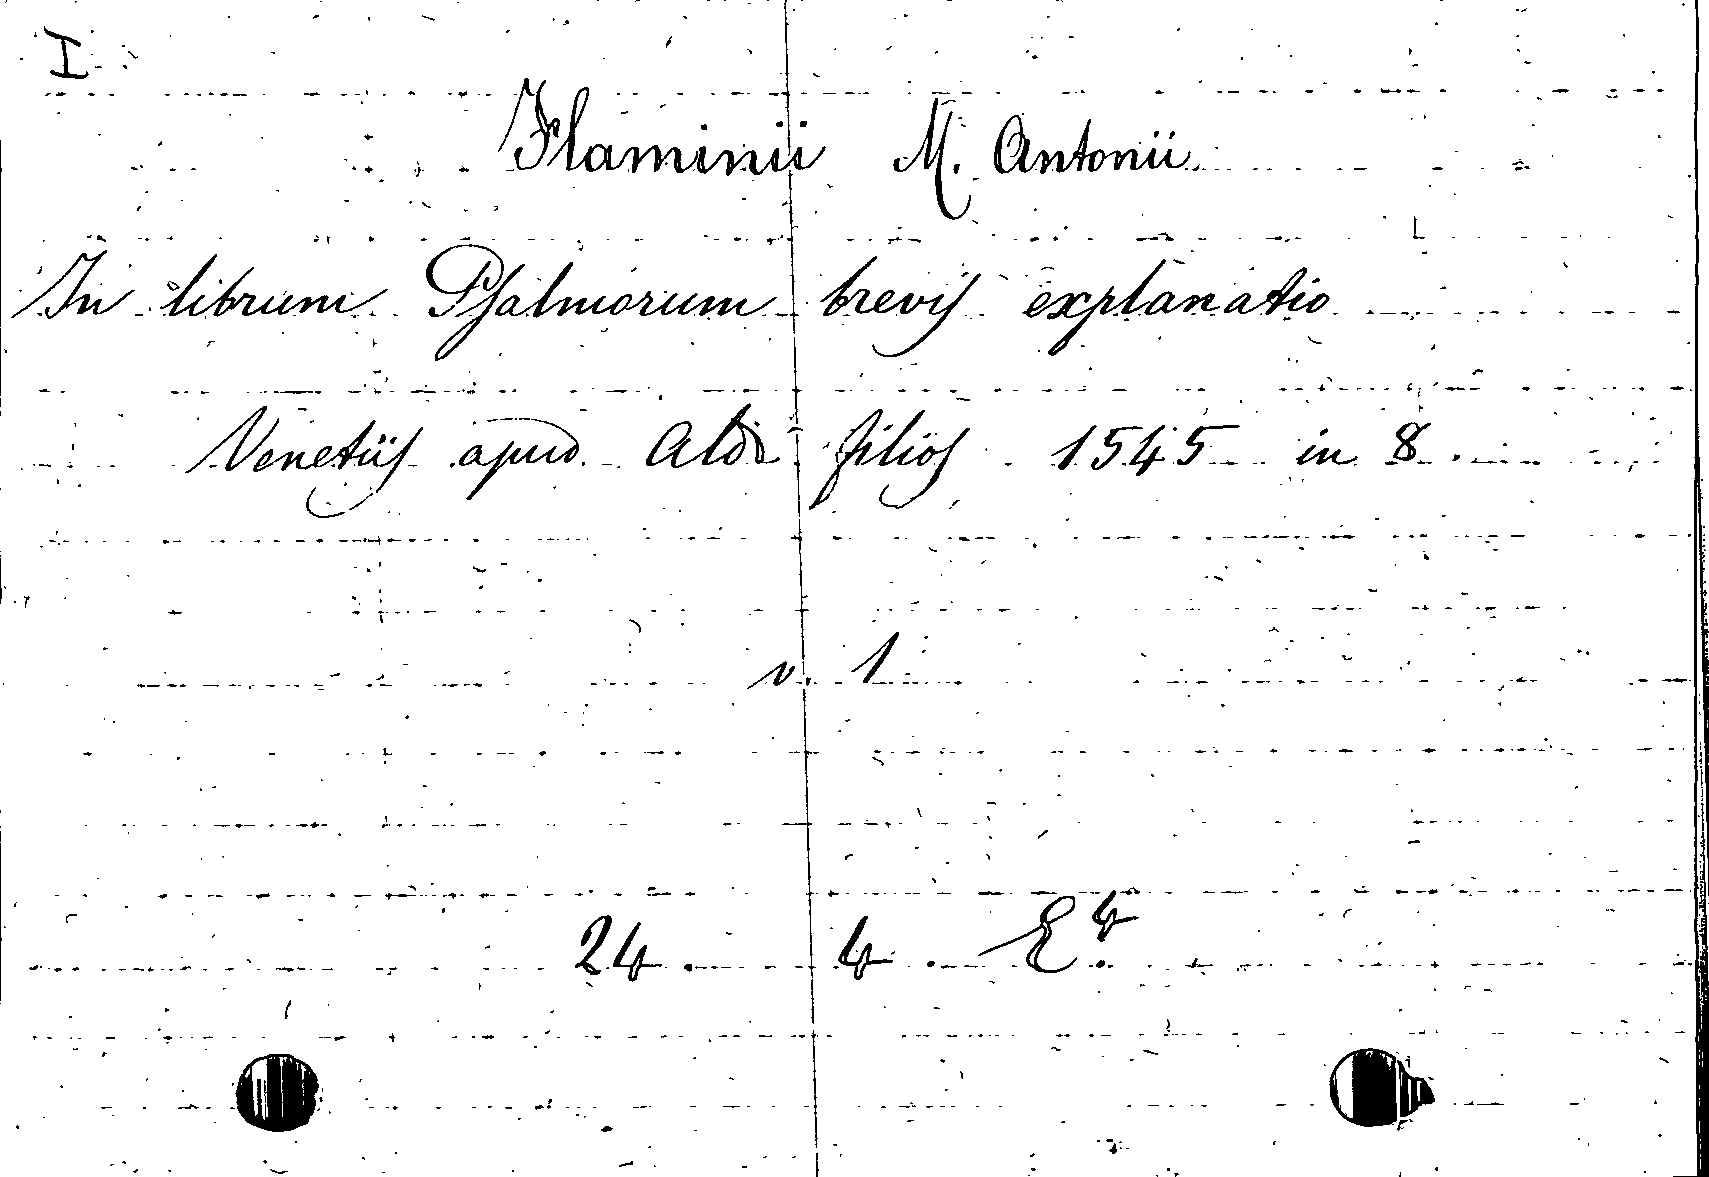 I
Flaminii M. Antonii
In librum Psalmorum brevis explanatio
Venetiis apud Aldi filios 1545 in 8.
v. 1
24. 4. E⁴.